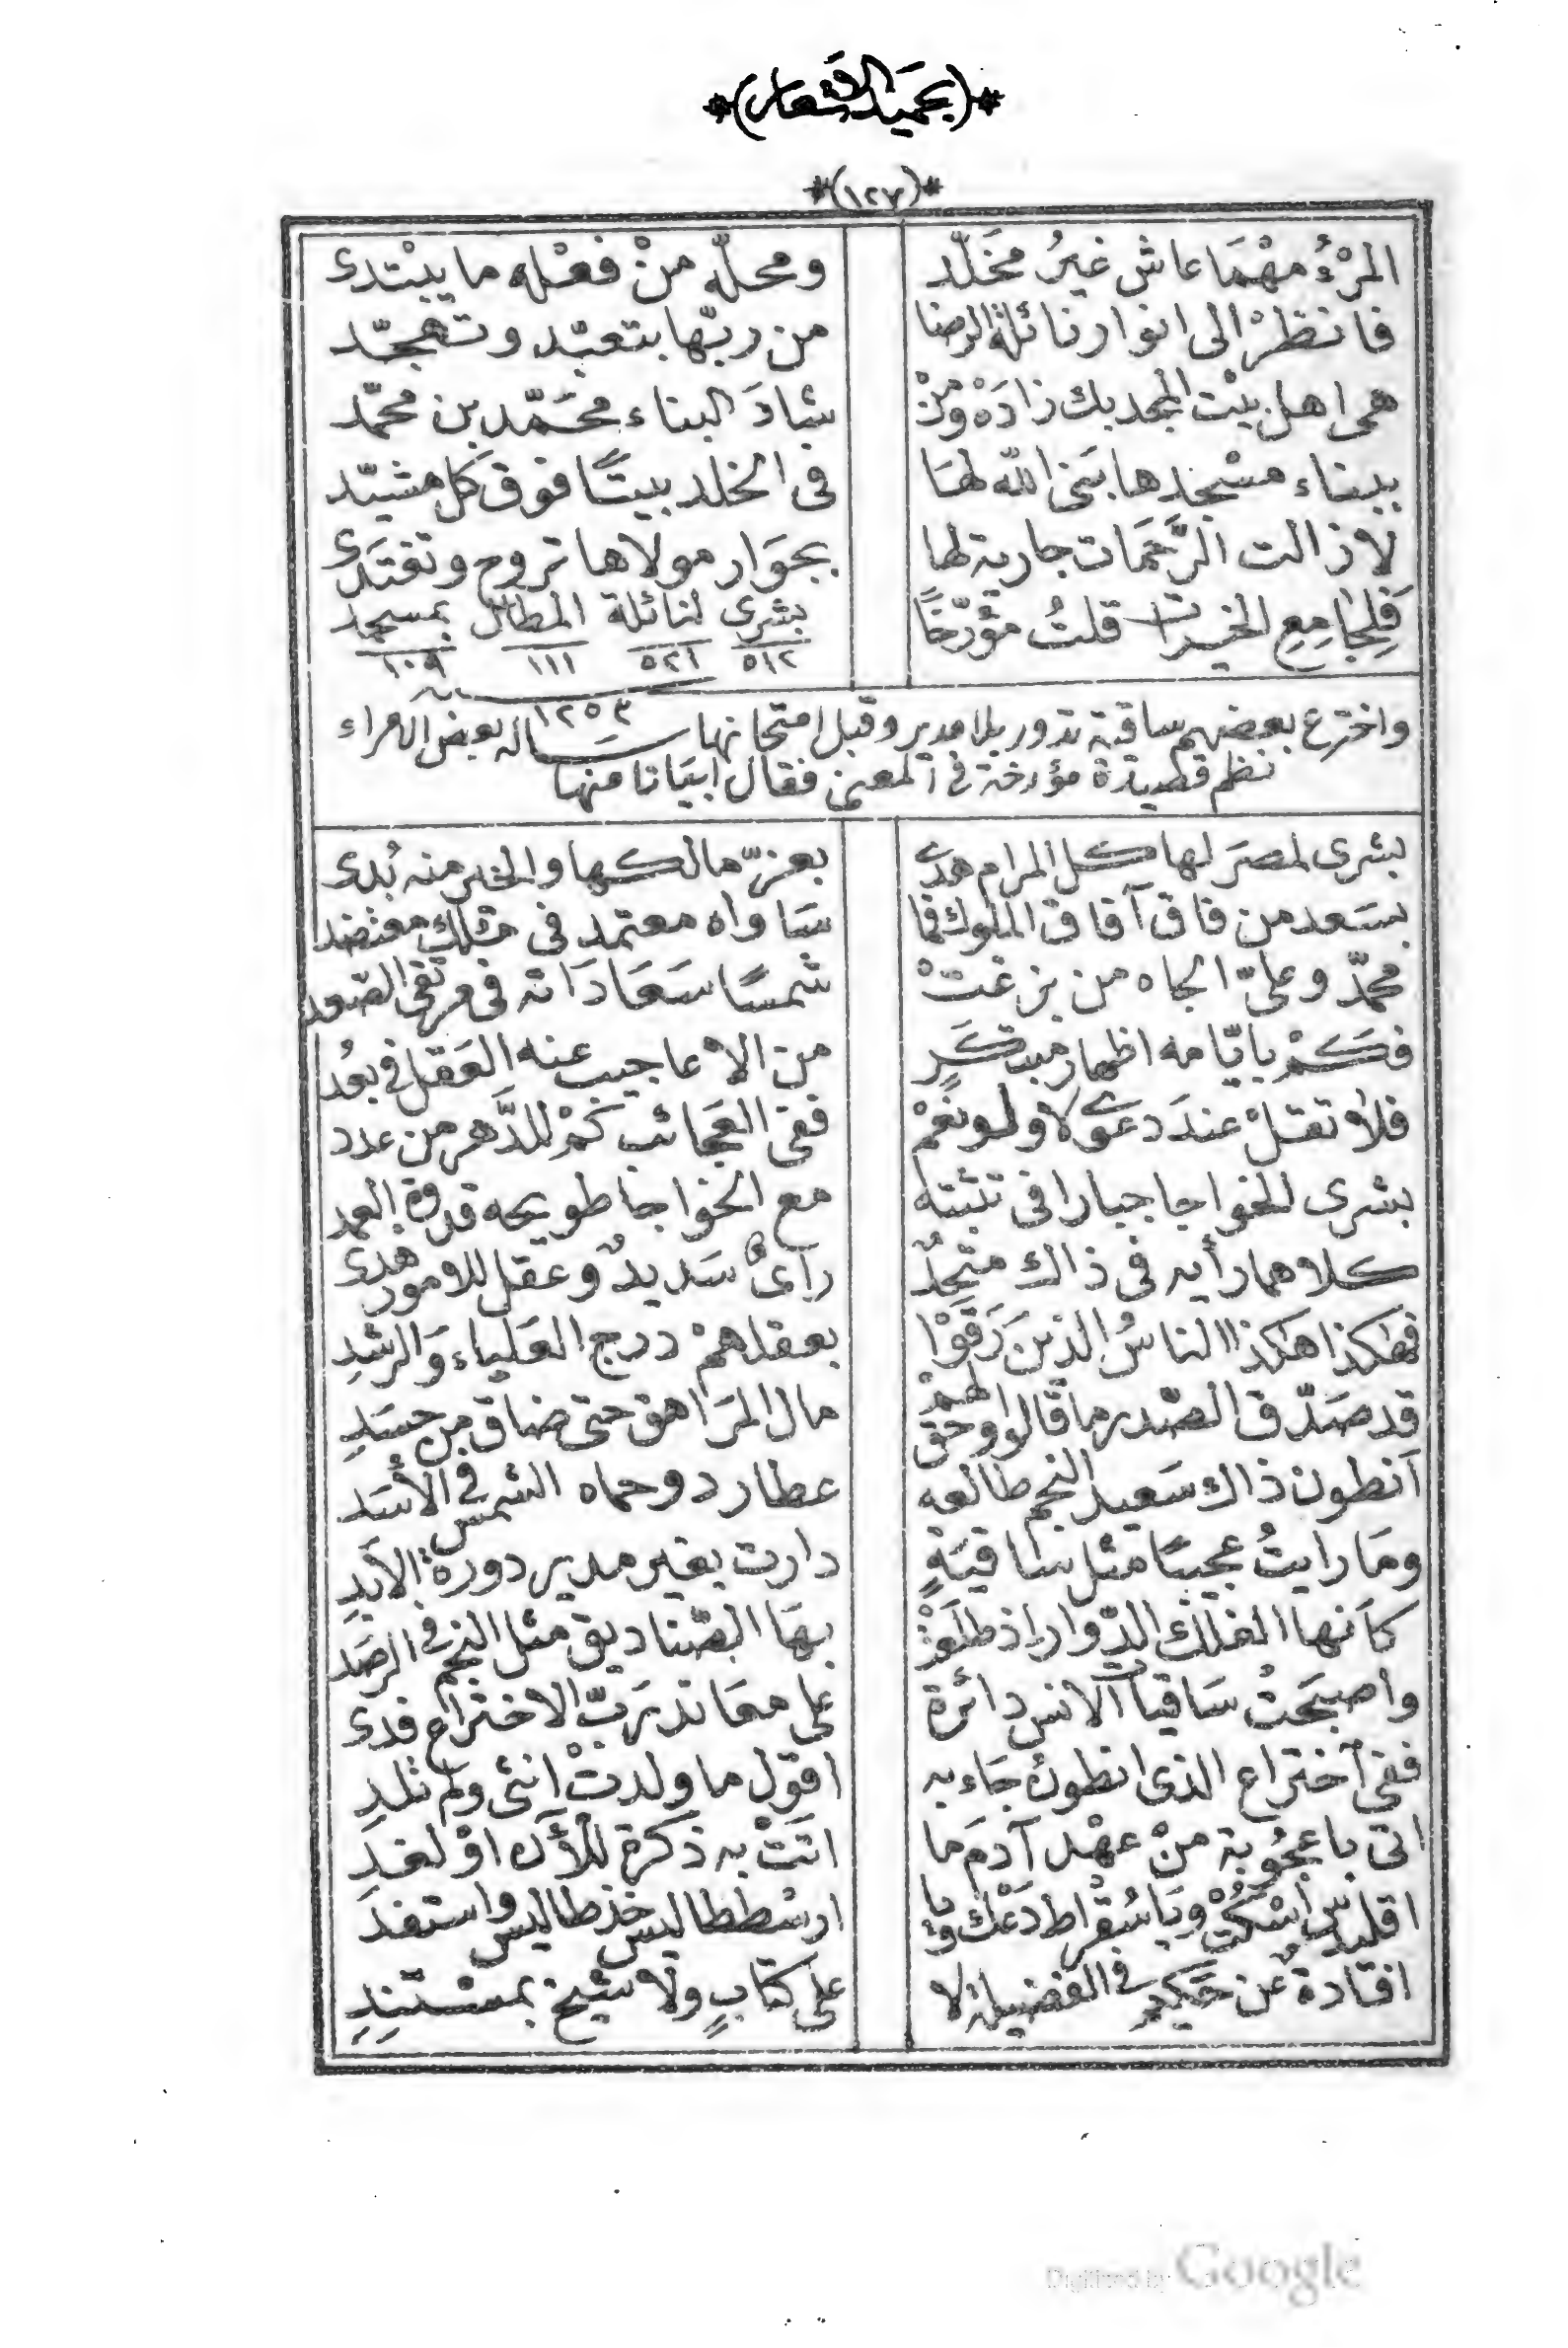 *(بحميد الاشعار)*
*(١٢٧)*
المرْءُ مهْمَا عاش غيرُ مخَلّد ومحلّه منْ فعْله ما يبْتدى
فانظرْ الى انوار نائلة الرضا من ربّها بتعبّد وتهجّد
هى اهل بيْت المجد بك زادَهْ ومنْ شادَ البناء محَمّد بن محمّد
ببناء مسْجدها بَنى الله لهَا فى الخلد بيتًا فوق كل مشيّد
لا زالت الرَّحمَات جارية لها بجوَار مولاها تروح وتغتَدى
فَلِجَامِعِ الخيرات قلتُ مؤرّخًا بشرى لنائلة المطالب بمسجد
٥١٢ ٥٢١ ١١١ ١٠٩
سنة ١٢٥٣
واخترع بعضهم ساقية تدور بلا مدير وقبل امتحانها سَاله بعض الامراء
نظم قصيدة مؤرخة فى المعنى فقال ابيَاتا منها
بشرى لمصرَ لها كل المرام هدى بعزّ مالكها والخير منه بُدى
بسَعد من فاق آفاق الملوك فما سَاواه معتمد فى مثلك معتضد
محمّد وعلىّ الجاه من بزغتْ شمسًا سَعَادَاته فى مرتقى الصّعد
فكَمْ بايّامه اظهار مبتكَرٍ من الاعاجيب عنه العَقل فى بعُد
فلا تقلْ عندَ دعوى لا ولو نعَمْ ففى العجَائب كمْ للدَّهر من عدد
بشرى للخواجا جبارا فى تثبته مع الخواجا طويحه قدوة العمد
كلاهما رأيه فى ذاك متّحدٌ راىٌ سَديدٌ وعقل للامور هدى
فهكذا هكذا الناسُ الذينَ رَقَوْا بعقلهمْ درج العَلياء وَالرشدِ
قد صَدّق الصّدر ما قالوا وحق لهمْ مال المرَاهق حتى ضاق من حسَدِ
اَنطون ذاك سَعيد النجم طالعه عطارد وحماه الشمس فى الأسَد
ومَا رايتُ عجيبًا مثل ساقيَةٍ دارت بغير مدير دورة الاَبدِ
كاَنها الفلك الدّوار اذ طلعَتْ بهَا الصّناديق مثل النجم فى الرصَد
واصبحَتْ سَاقيات الانس دائرة على معَاند رَبّ الاختراع قدى
ففى اختراع الذى انطون جَاء به اقول ما ولدتْ انثى ولم تلدِ
اتى باعجُوبة منْ عهْد آدمَ ما اتَتْ به ذكرة للأن اوْ لغدِ
اقليدس اسْكتْ ويَا سُقراط دَعْك ويا ارسْططاليس خذ طاليس واستفدَ
افادة عن حَكيم فى الفضيلة لا على كتابٍ ولا شيْخ بمسْتنِدِ
Digitized by Google